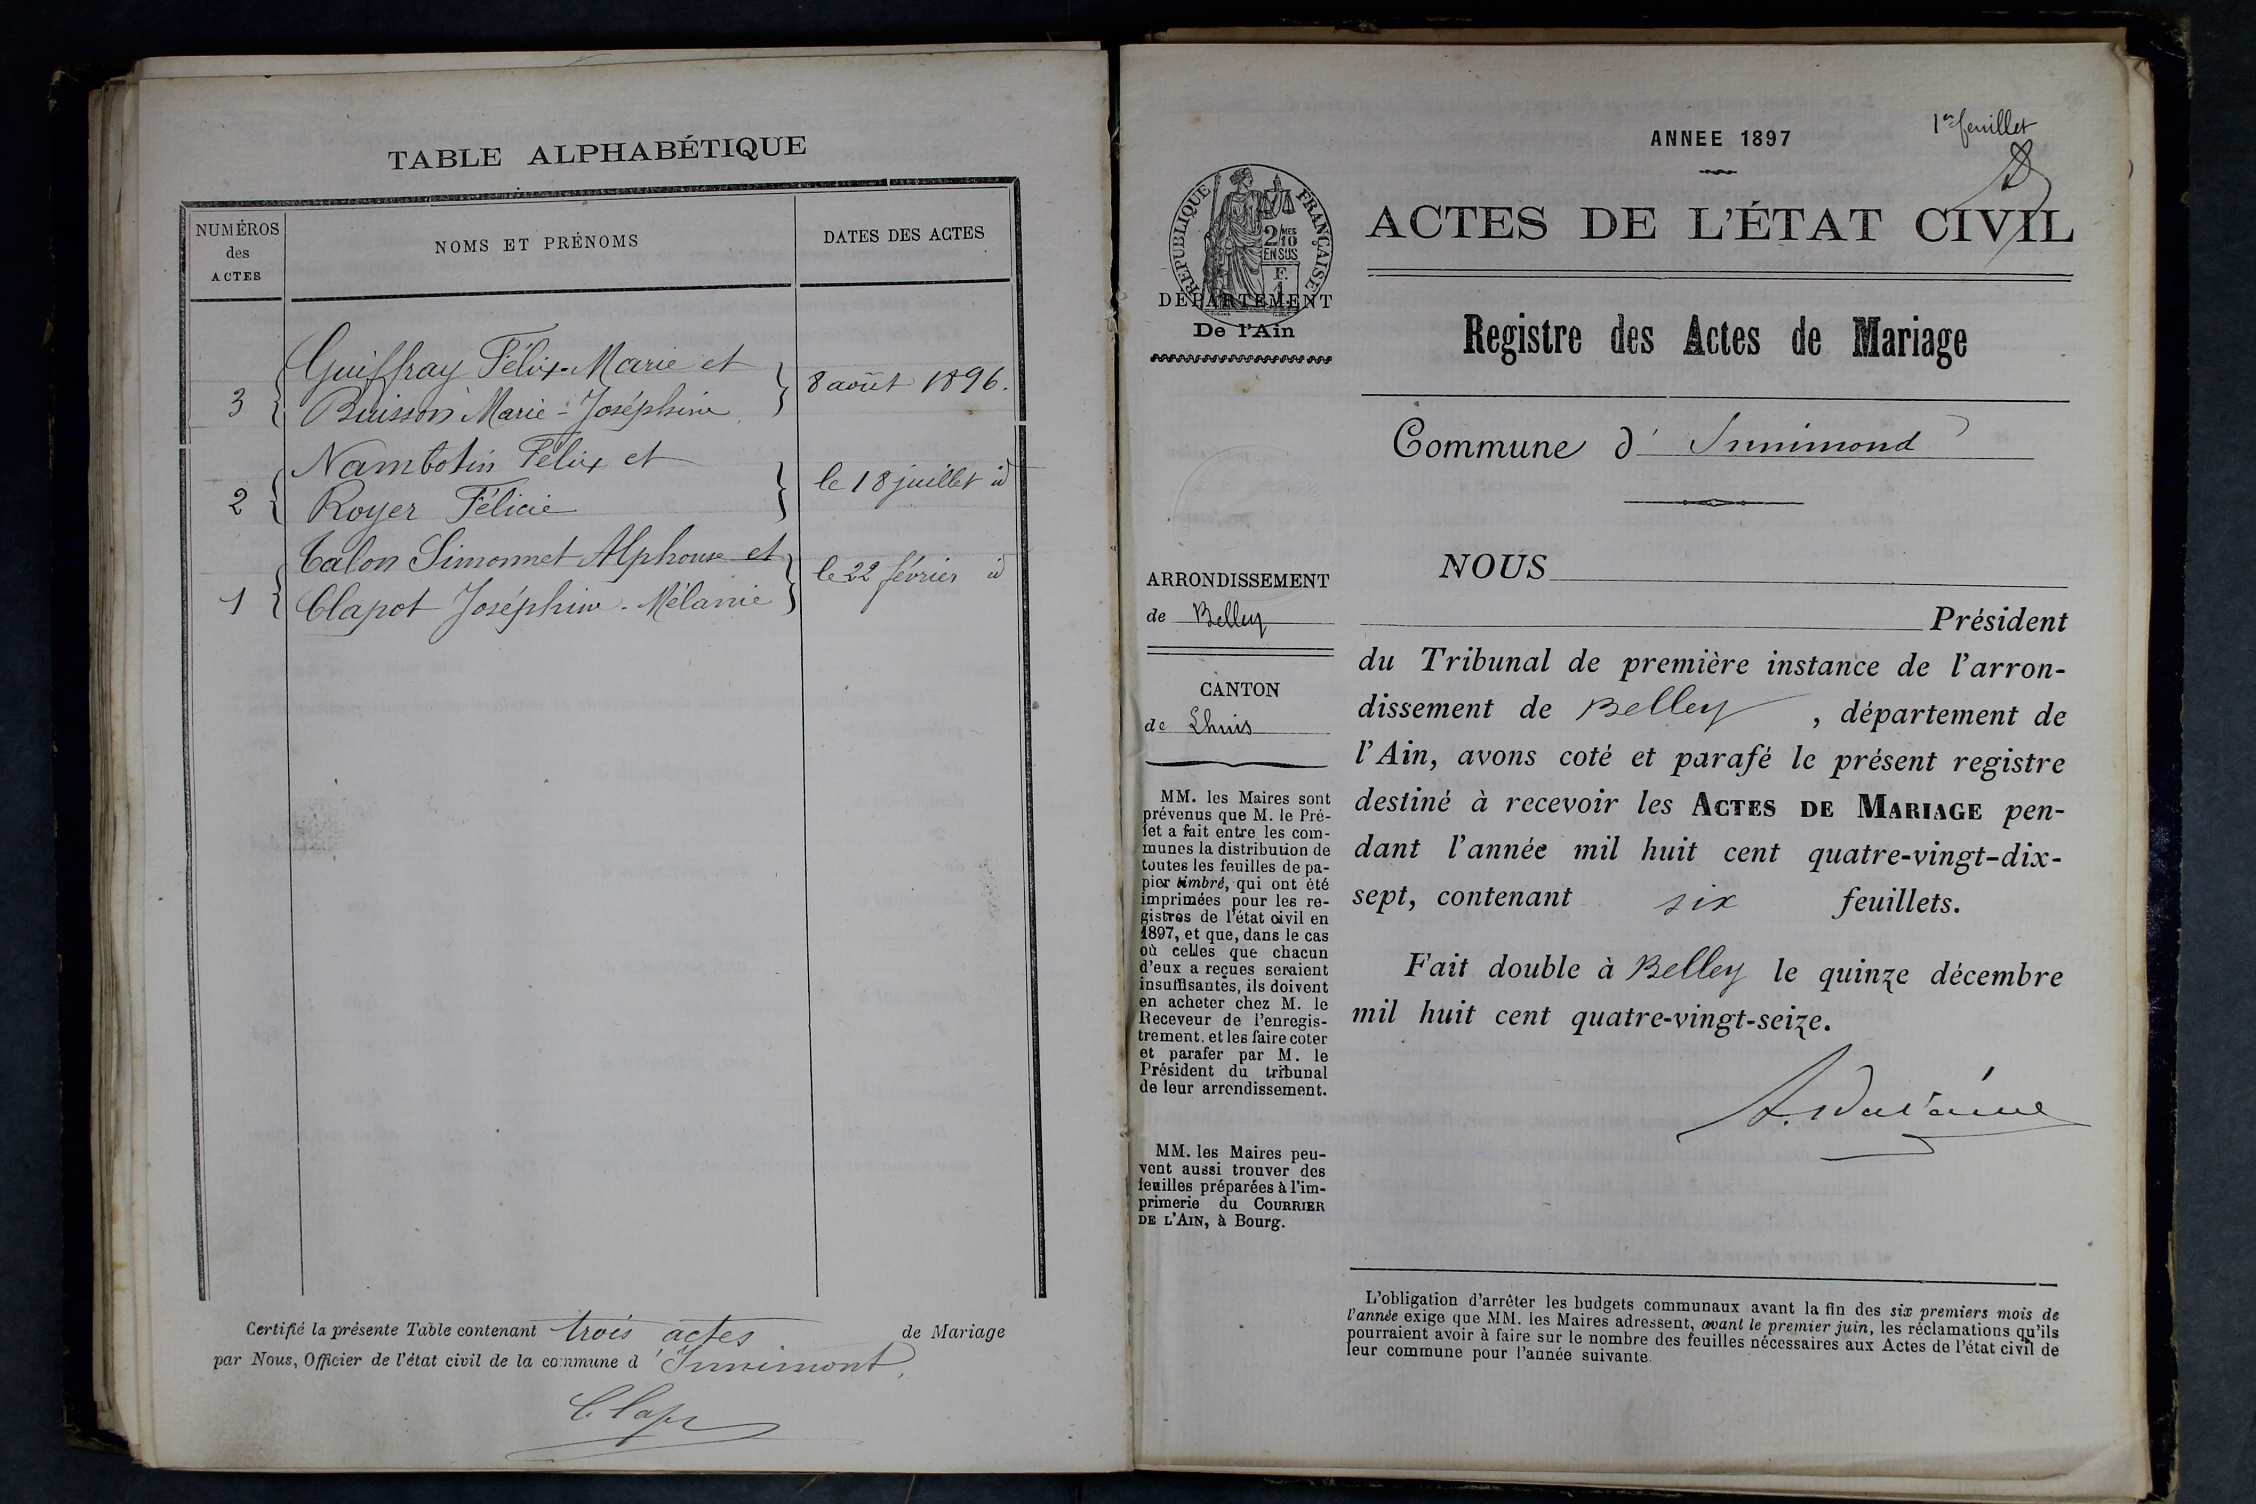 TABLE ALPHABÉTIQUE
NUMÉROS
des
ACTES
NOMS ET PRÉNOMS
DATES DES ACTES
Guiffray Félix-Marie et
3 { Buisson Marie-Joséphine } 8 août 1896.
Nambotin Félix et
2 { Royer Félicie } le 18 juillet id
Talon Simonnet Alphonse et
1 { Clapot Joséphine-Mélanie } le 22 février id
Certifié la présente Table contenant trois actes de Mariage
par Nous, Officier de l'état civil de la commune d'Innimont,
1er feuillet
ANNEE 1897
RÉPUBLIQUE FRANÇAISE
2/10 MES
EN SUS
F.
1
ACTES DE L'ÉTAT CIVIL
DÉPARTEMENT
De l'Ain
Registre des Actes de Mariage
Commune d' Innimond
ARRONDISSEMENT
de Belley
CANTON
de Lhuis
MM. les Maires sont
prévenus que M. le Pré-
fet a fait entre les com-
munes la distribution de
toutes les feuilles de pa-
pier timbré, qui ont été
imprimées pour les re-
gistres de l'état civil en
1897, et que, dans le cas
où celles que chacun
d'eux a reçues seraient
insuffisantes, ils doivent
en acheter chez M. le
Receveur de l'enregis-
trement, et les faire coter
et parafer par M. le
Président du tribunal
de leur arrondissement.
MM. les Maires peu-
vent aussi trouver des
feuilles préparées à l'im-
primerie du COURRIER
DE L'AIN, à Bourg.
NOUS
Président
du Tribunal de première instance de l'arron-
dissement de Belley, département de
l'Ain, avons coté et parafé le présent registre
destiné à recevoir les ACTES DE MARIAGE pen-
dant l'année mil huit cent quatre-vingt-dix-
sept, contenant six feuillets.
Fait double à Belley le quinze décembre
mil huit cent quatre-vingt-seize.
L'obligation d'arrêter les budgets communaux avant la fin des six premiers mois de
l'année exige que MM. les Maires adressent, avant le premier juin, les réclamations qu'ils
pourraient avoir à faire sur le nombre des feuilles nécessaires aux Actes de l'état civil de
leur commune pour l'année suivante.